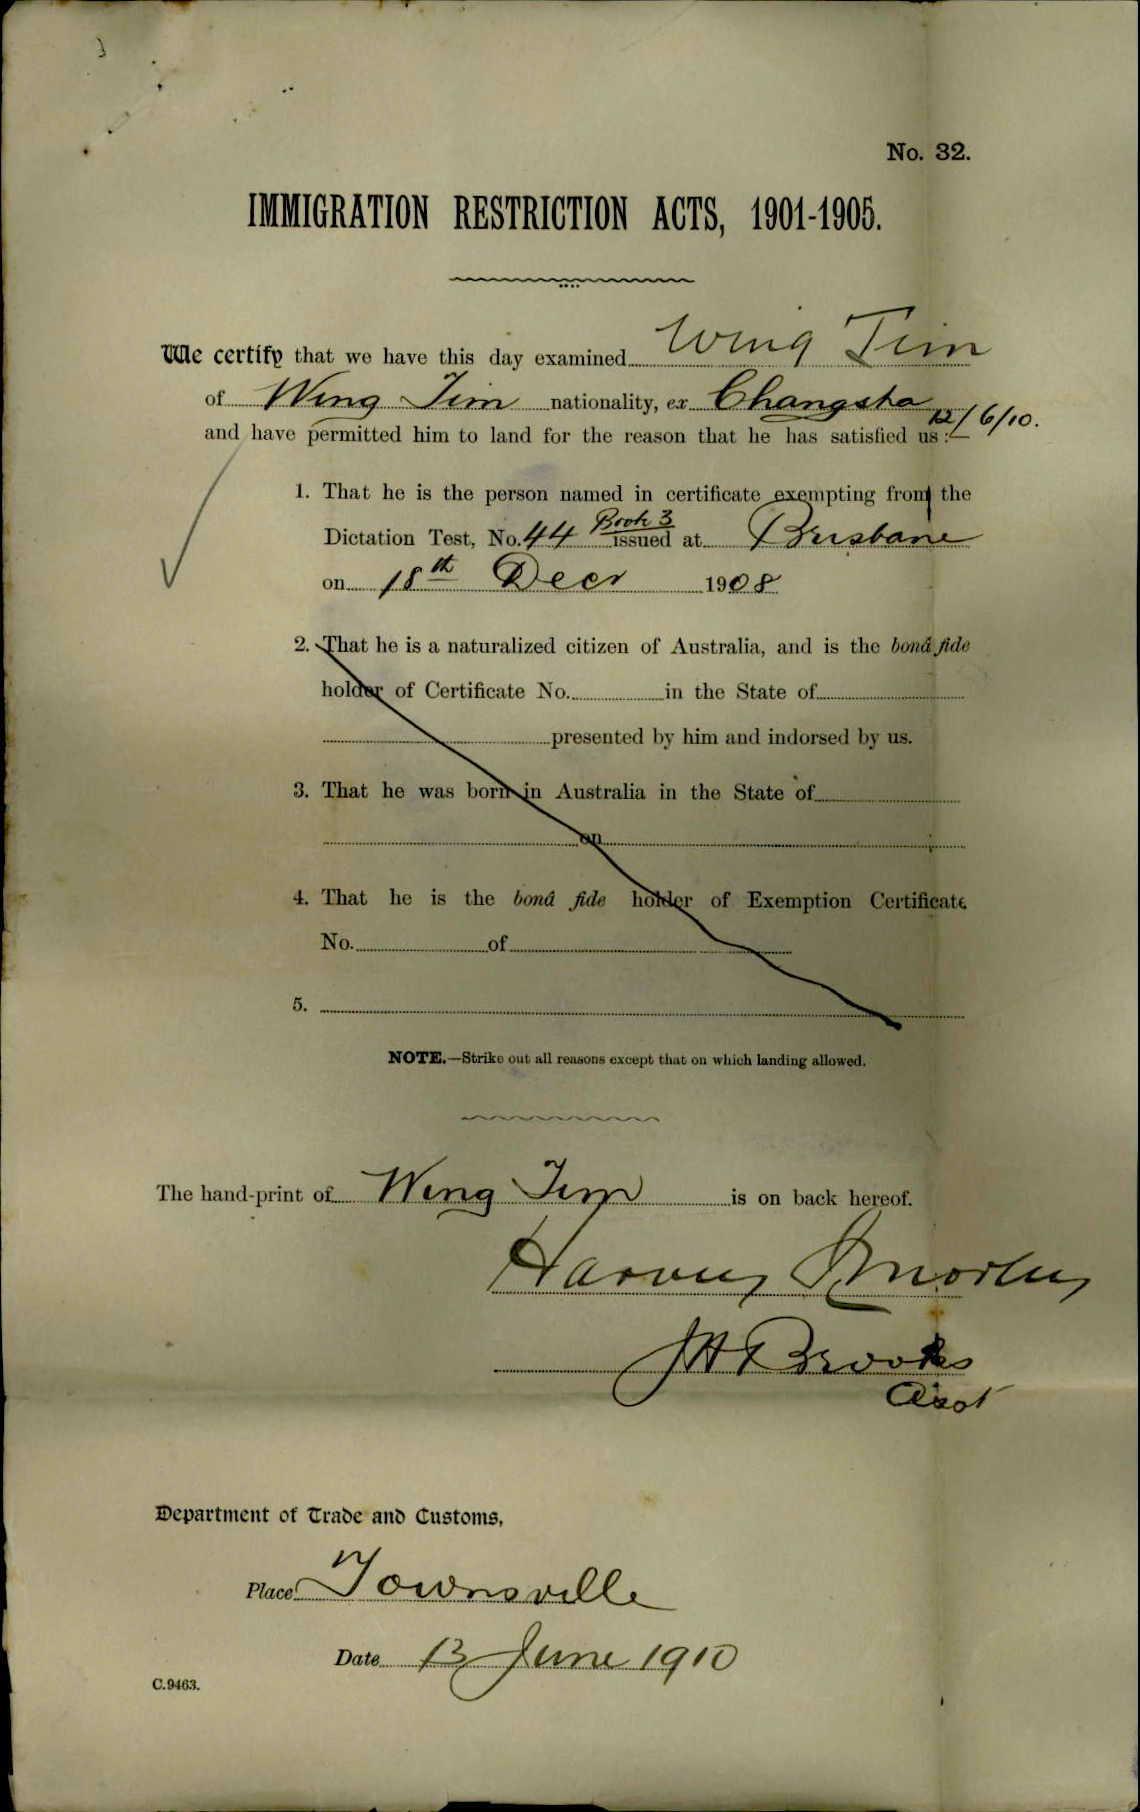 No. 32.
IMMIGRATION RESTRICTION ACTS, 1901-1905.
We certify that we have this day examined Wing Tim
of Wing Tim nationality, ex Changsha
12/6/10.
and have permitted him to land for the reason that he has satisfied us :—
1. That he is the person named in certificate exempting from the
Dictation Test, No. 44 Book 3 issued at Brisbane
on 18th Decr 1908
2. That he is a naturalized citizen of Australia, and is the bonâ fide
holder of Certificate No. in the State of
presented by him and indorsed by us.
3. That he was born in Australia in the State of
on
4. That he is the bonâ fide holder of Exemption Certificate
No. of
5.
NOTE.—Strike out all reasons except that on which landing allowed.
The hand-print of Wing Tim is on back hereof.
Harvey
J H Brooks
Department of Trade and Customs,
Place Townsville
Date 13 June 1910
C.9463.